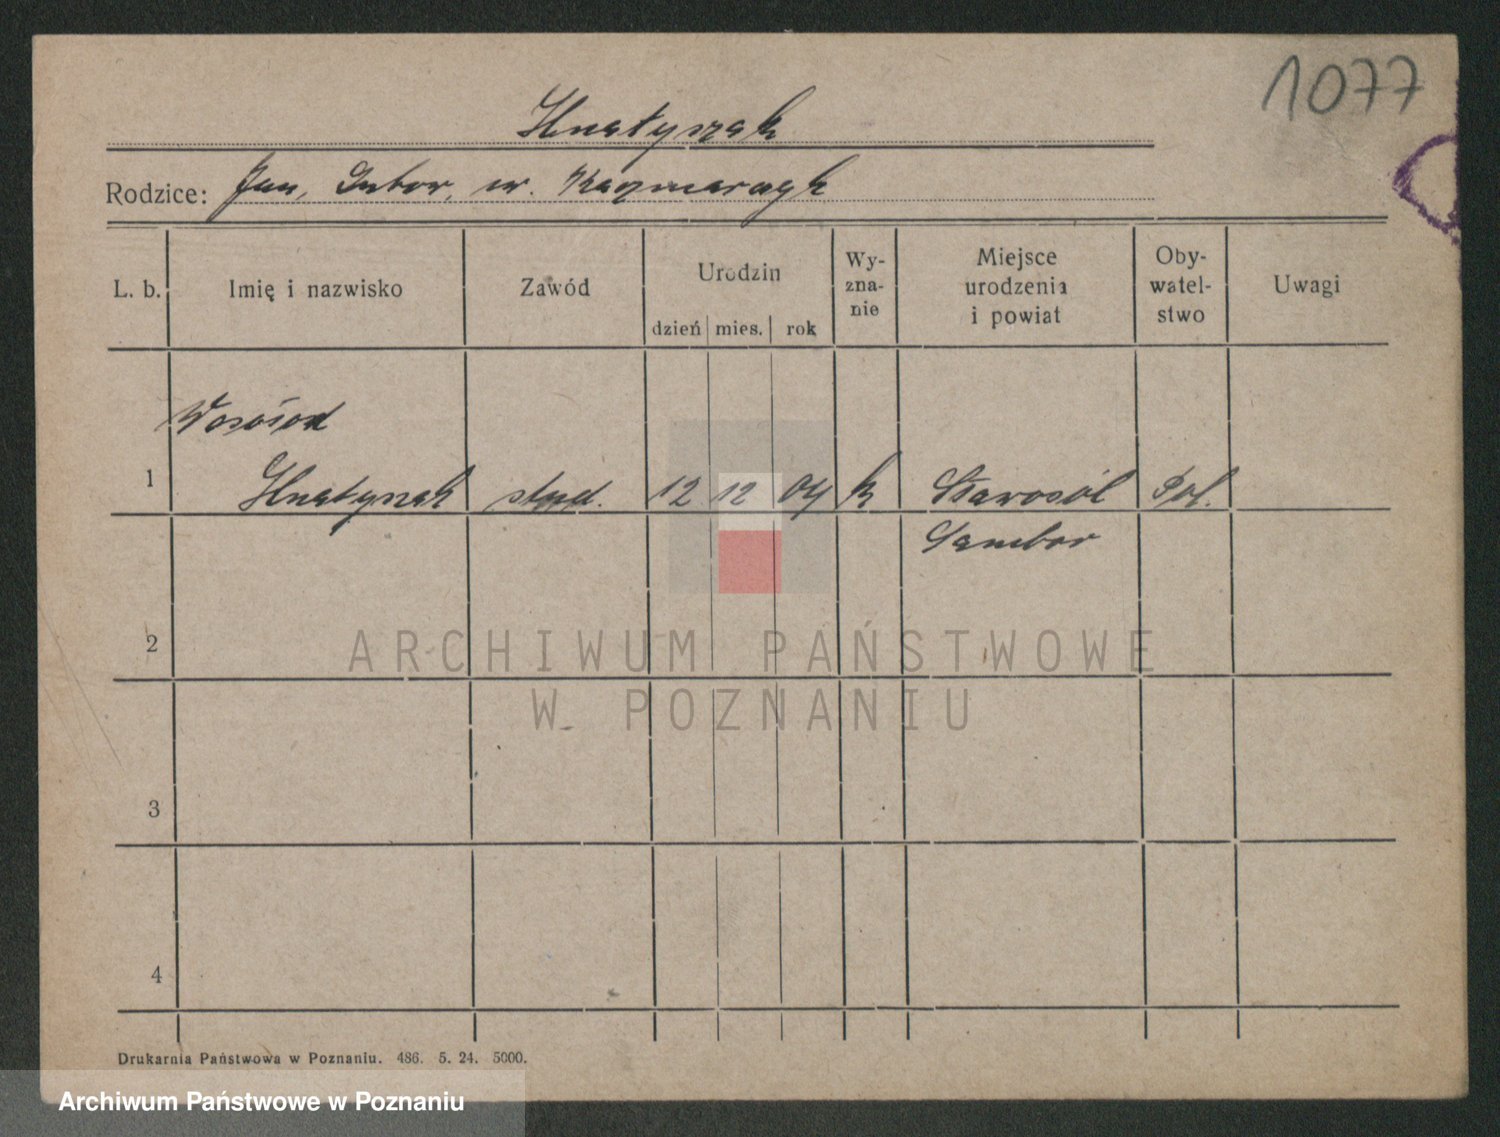 1077
Hnatyszak
Rodzice: Jan, ur. Kaczmarczyk
L. b. Imię i nazwisko Zawód Urodzin dzień mies. rok Wy-zna-nie Miejsce urodzenia i powiat Oby-watel-stwo Uwagi
1 Hnatyszak stud. 12 12 04 k Starosól Pol.
Sambor
2
3
4
Drukarnia Państwowa w Poznaniu. 486. 5. 24. 5000.
ARCHIWUM PAŃSTWOWE
W POZNANIU
Archiwum Państwowe w Poznaniu